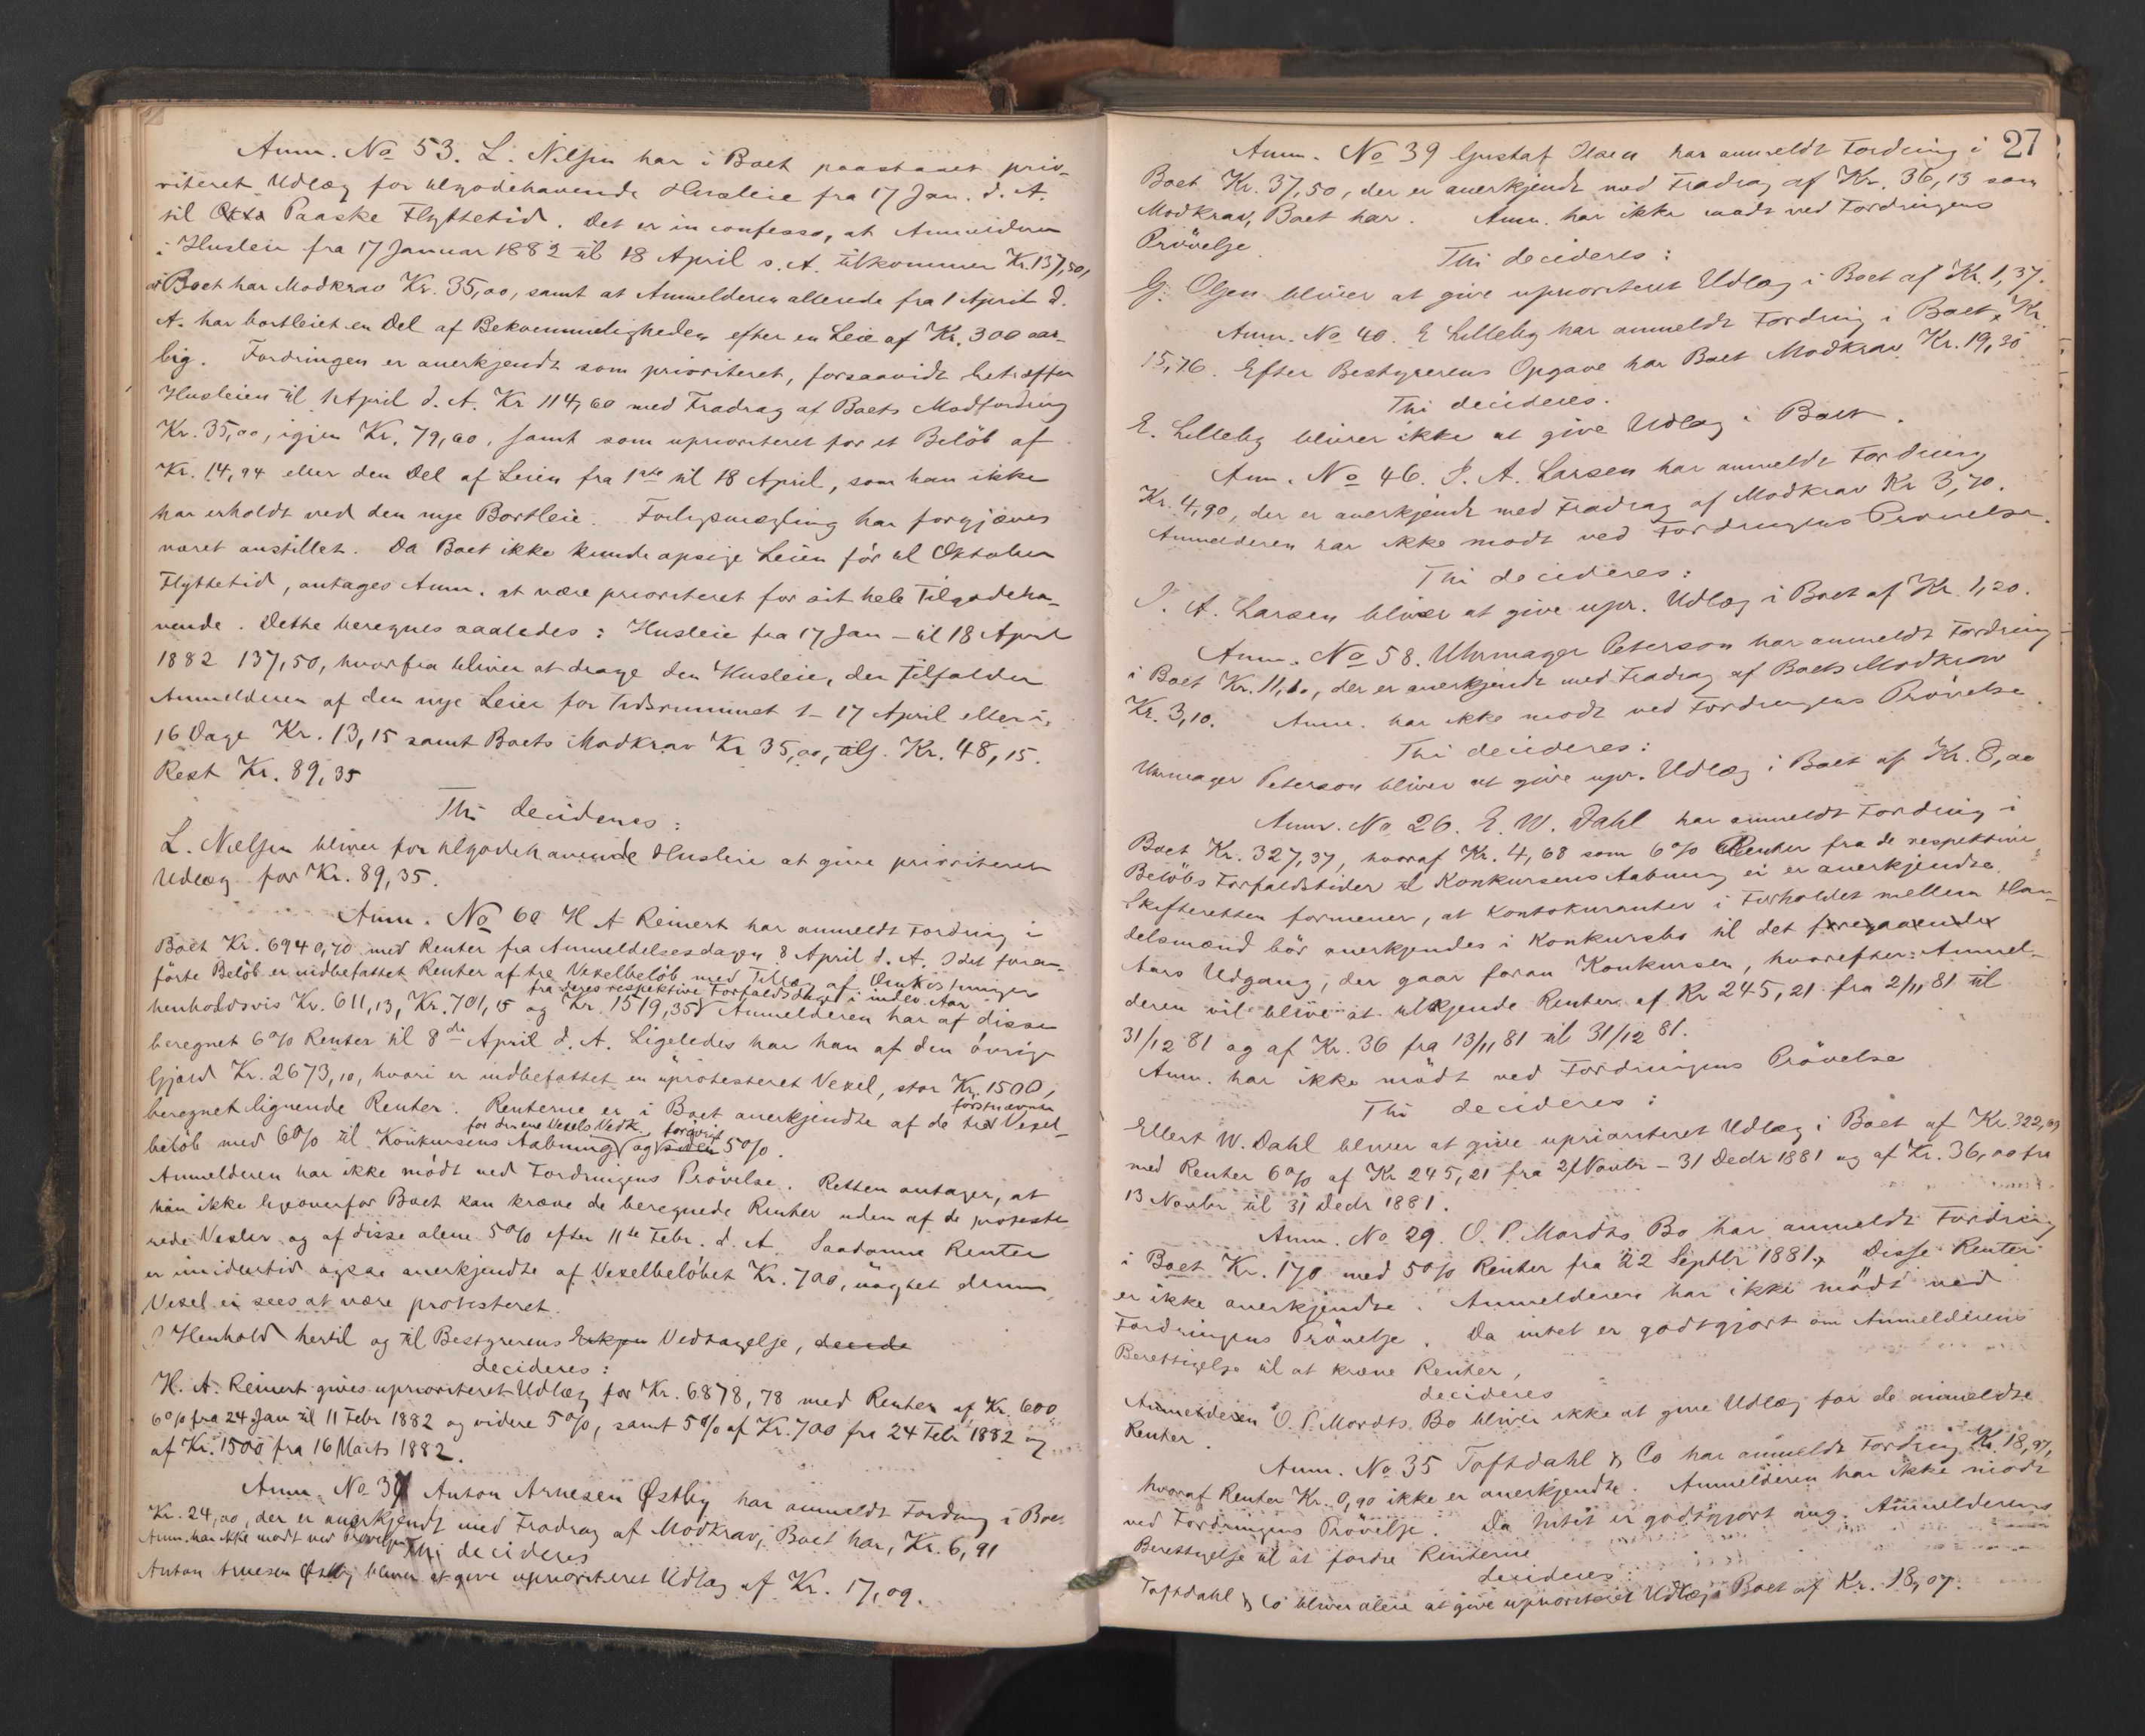 Anm. No 53. L. Nilsen har i Boet paastaaet prio-
riteret Udlæg for tilgodehavende Husleie fra 17 Jan. d. A.
til Okto Paaske Flyttetid. Det er in confesso, at Anmelderen
i Husleie fra 17 Januar 1882 til 18 April s. A. tilkommer Kr. 137,50,
at Boet har Modkrav Kr. 35,00, samt at Anmelderen allerede fra 1 April d.
A. har bortleiet en Del af Bekvemmeligheden efter en Leie af Kr. 300 aar-
lig. Fordringen er anerkjendt som prioriteret, forsaavidt betræffer
Husleien til 1 April d. A. Kr 114,60 med Fradrag af Boets Modfordring
Kr. 35,00, igjen Kr. 79,60, samt som uprioriteret for et Beløb af
Kr. 14,94 eller den Del af Leien fra 1ste til 18 April, som han ikke
har erholdt ved den nye Bortleie. Forligsmægling har forgjæves
været anstillet. Da Boet ikke kunde opsige Leien før til Oktober
Flyttetid, antages Anm. at være prioriteret for sit hele Tilgodeha-
vende. Dette beregnes saaledes: Husleie fra 17 Jan – til 18 April
1882 137,50, hvorfra bliver at drage den Husleie, der tilfalder
Anmelderen af den nye Leier for Tidsrummet 1– 17 April eller i
16 Dage Kr. 13,15 samt Boets Modkrav Kr 35,00, tils. Kr. 48,15.
Rest Kr. 89,35
Thi decideres:
L. Nielsen bliver for tilgodehavende Husleie at give prioriteret
Udlæg for Kr. 89,35.
Anm. No 60 H A Reinert har anmeldt Fordring i
Boet Kr. 6940,70 med Renter fra Anmeldelsesdagen 8 April d. A. I det foran-
førte Beløb er indbefattet Renter af tre Vexelbeløb med Tillæg af Omkostninger
fra deres respektive Forfaldsdage i indev. Aar
henholdsvis Kr. 611,13, Kr. 701,15 og Kr. 1519,35 Anmelderen har af disse
beregnet 6% Renter til 8de April d. A. Ligeledes har han af den øvrige
Gjæld Kr. 2673,10, hvori er indbefattet en uprotesteret Vexel, stor Kr. 1500,
beregnet lignende Renter. Renterne er i Boet anerkjendte af de tre førstnævnte Vexel-
for den ene Vexels Vedk. forøvrigt
beløb med 6% til Konkursens Aabning og siden 5%.
Anmelderen har ikke mødt ved Fordringens Prøvelse. Retten antager, at
han ikke ligeoverfor Boet kan kræve de beregnede Renter uden af de proteste-
rede Vexler og af disse alene 5% efter 11te Febr. d. A. Saadanne Renter
er imidlertid ogsaa anerkjendte af Vexelbeløbet Kr. 700, uagtet denne
Vexel ei sees at være protesteret.
I Henhold hertil og til Bestyrerens Erkjen Vedtagelse, decide
decideres:
H. A. Reinert gives uprioriteret Udlæg for Kr. 6878,78 med Renter af Kr. 600
6% fra 24 Jan til 11 Febr 1882 og videre 5%, samt 5% af Kr. 700 fra 24 Febr 1882 og
af Kr. 1500 fra 16 Marts 1882.
Anm. No 37 Anton Arnesen Østby har anmeldt Fordring i Boet
Kr. 24,00, der er anerkjendt med Fradrag af Modkrav, Boet har, Kr. 6,91
Anm. har ikke mødt ved Prøvelsen Thi decideres
Anton Arnesen Østby bliver at give uprioriteret Udlæg af Kr. 17,09.
27
Anm. No 39 Gustaf Olsen har anmeldt Fordring i
Boet Kr. 37,50, der er anerkjendt med Fradrag af Kr. 36,13 som
Modkrav, Boet har. Anm. har ikke mødt ved Fordringens
Prøvelse.
Thi decideres:
G. Olsen bliver at give uprioriteret Udlæg i Boet af Kr. 1,37.
Anm. No 40. E Lilleby har anmeldt Fordring i Boet, Kr.
15,76. Efter Bestyrerens Opgave har Boet Modkrav Kr. 19,30
Thi decideres.
E. Lilleby bliver ikke at give Udlæg i Boet.
Anm. No 46. J. A. Larsen har anmeldt Fordring
Kr. 4,90, der er anerkjendt med Fradrag af Modkrav Kr 3,70.
Anmelderen har ikke mødt ved Fordringens Prøvelse.
Thi decideres:
J. A. Larsen bliver at give upr. Udlæg i Boet af Kr. 1,20.
Anm. No 58. Uhrmager Peterson har anmeldt Fordring
i Boet Kr. 11,10, der er anerkjendt med Fradrag af Boets Modkrav
Kr. 3,10. Anm. har ikke mødt ved Fordringens Prøvelse.
Thi decideres:
Uhrmager Peterson bliver at give upr. Udlæg i Boet af Kr. 8,00
Anm. No 26. E. W. Dahl har anmeldt Fordring i
Boet Kr. 327,37, hvoraf Kr. 4,68 som 6% Renter fra de respektive
Beløbs Forfaldstider til Konkursens Aabning ei er anerkjendte.
Skifteretten formener, at Kontokuranter i Forholdet mellem Han-
delsmænd bør anerkjendes i Konkursbo til det foregaaende
Aars Udgang, der gaar foran Konkursen, hvorefter Anmel-
deren vil blive at tilkjende Renter af Kr 245,21 fra 2/11 81 til
31/12 81 og af Kr. 36 fra 13/11 81 til 31/12 81.
Anm. har ikke mødt ved Fordringens Prøvelse
Thi decideres:
Ellert W. Dahl bliver at give uprioriteret Udlæg i Boet af Kr. 322,69
med Renter 6% af Kr 245,21 fra 2 Novbr – 31 Decbr 1881 og af Kr. 36,00 fra
13 Novbr til 31 Decbr 1881.
Anm. No 29. O. P. Mordts Bo har anmeldt Fordring
i Boet Kr. 170 med 5% Renter fra 22 Septbr 1881. Disse Renter
er ikke anerkjendte. Anmelderen har ikke mødt ved
Fordringens Prøvelse. Da intet er godtgjort om Anmelderens
Berettigelse til at kræve Renter,
decideres
Anmelderen O. P. Mordts Bo bliver ikke at give Udlæg for de anmeldte
Renter.
Anm. No 35 Toftdahl & Co har anmeldt Fordring Kr. 18,97,
hvoraf Renter Kr. 0,90 ikke er anerkjendte. Anmelderen har ikke mødt
ved Fordringens Prøvelse. Da intet er godtgjort ang. Anmelderens
Berettigelse til at fordre Renterne
decideres:
Toftdahl & Co bliver alene at give uprioriteret Udlæg i Boet af Kr. 18,07.